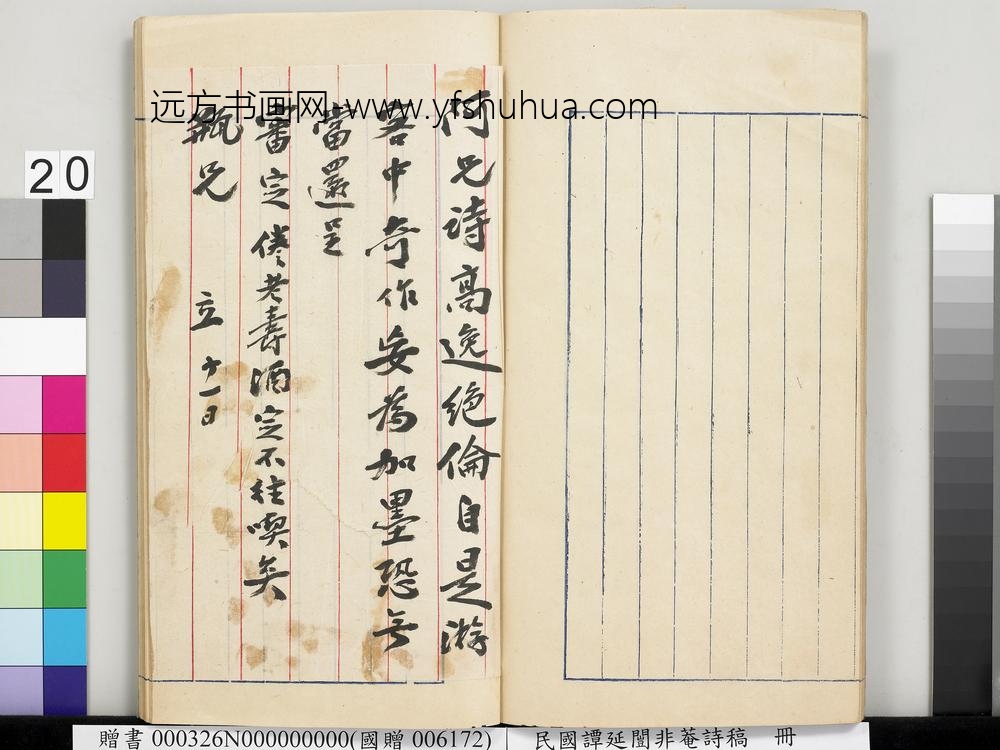 远方书画网-www.yfshuhua.com
阿兄詩高逸絕倫自是游
中奇作妄為加墨恐無
當還呈
審定 倦老壽酒定不往喫矣
瓶兄 立 十一日
20
贈書 000326N000000000(國贈 006172) 民國譚延闓非菴詩稿 冊